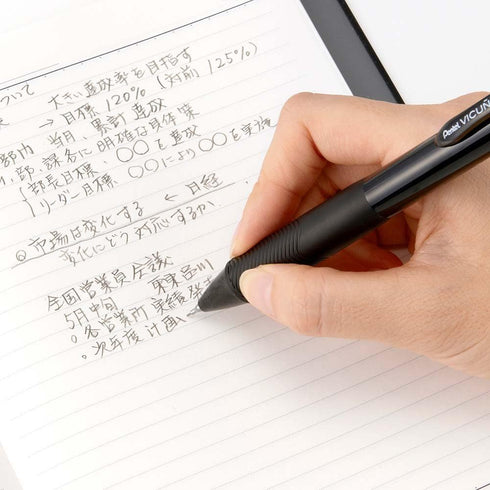 ついて
大きい達成率を目指す
→ 目標 120% (対前 125%)
当月、累計 達成
部内
部、課名に 明確な具体策
部長目標、〇〇 を達成
リーダー目標、〇〇により〇〇を実施
◎ 市場は変化する ← 日経
変化にどう対応するか、
全国営業員会議
5月中旬 東品川
。各営業所 実績発
。次年度 計画
Pentel VICUÑ